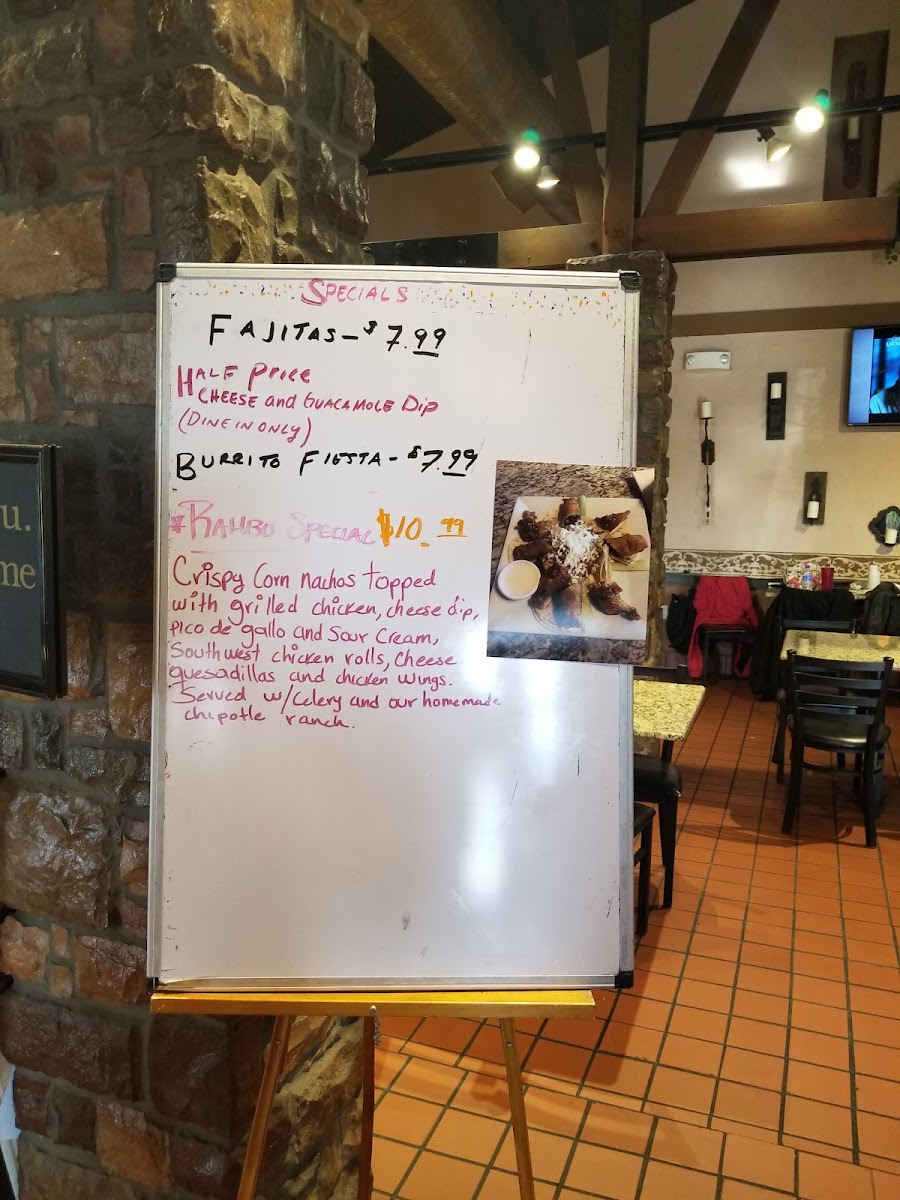 Specials
Fajitas - $7.99
Half Price
Cheese and Guacamole Dip
(Dine in only)
Burrito Fiesta - $7.99
*Rambo Special $10.99
Crispy Corn nachos topped
with grilled chicken, cheese dip,
pico de gallo and Sour Cream,
Southwest chicken rolls, Cheese
quesadillas and chicken wings.
Served w/Celery and our homemade
chipotle ranch.
u.
me